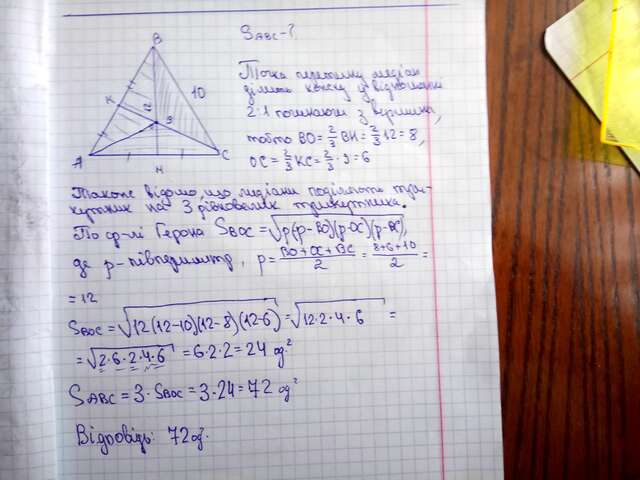 S ABC = ?
Точка перетину медіан
ділить кожну у відношенні
2:1 починаючи з вершини,
тобто BO = 2/3 BH = 2/3 · 12 = 8,
OC = 2/3 KC = 2/3 · 9 = 6
A
K
B
O
H
C
9
10
Також відомо, що медіани поділяють три-
кутник на 3 рівновеликі трикутника.
По ф-лі Герона S BOC = √p(p-BO)(p-OC)(p-BC),
де p - півпериметр, p = BO+OC+BC/2 = 8+6+10/2 =
= 12
S BOC = √12(12-10)(12-8)(12-6) = √12·2·4·6 =
= √2·6·2·4·6 = 6·2·2 = 24 од²
S ABC = 3·S BOC = 3·24 = 72 од²
Відповідь: 72 од.